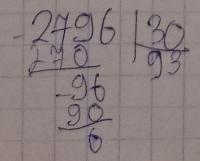 -2796 | 30
270 93
-96
90
6